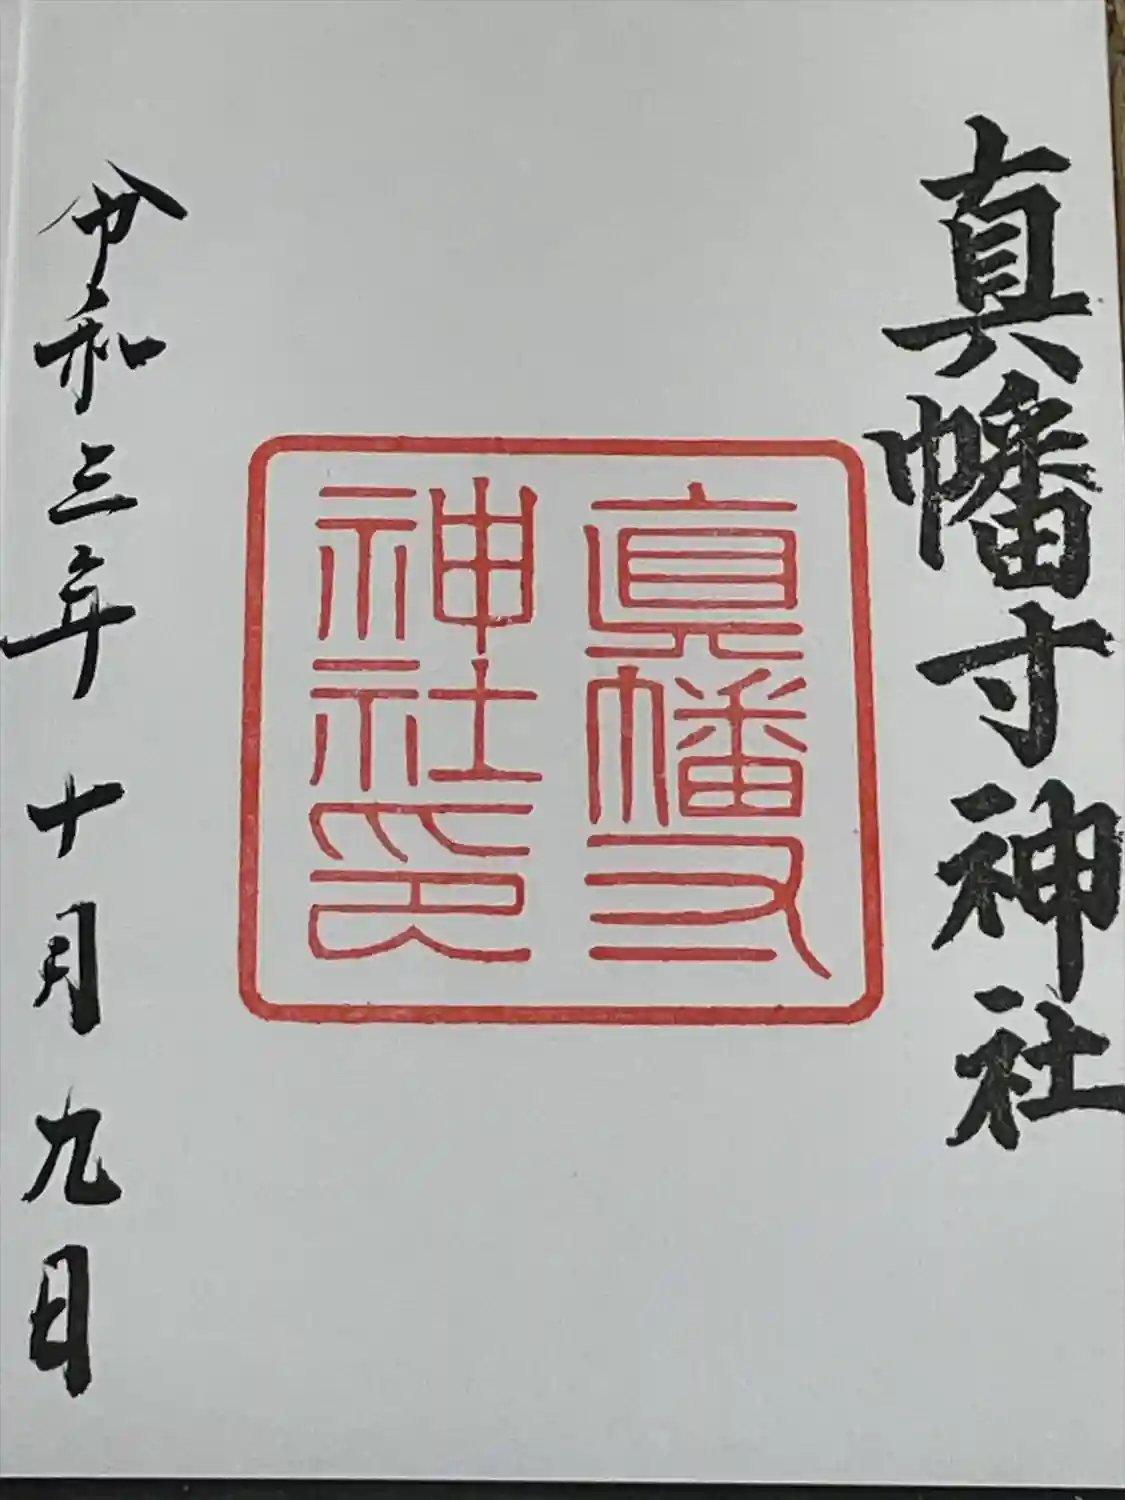 真幡寸神社
真幡寸
神社印
令和三年十月九日